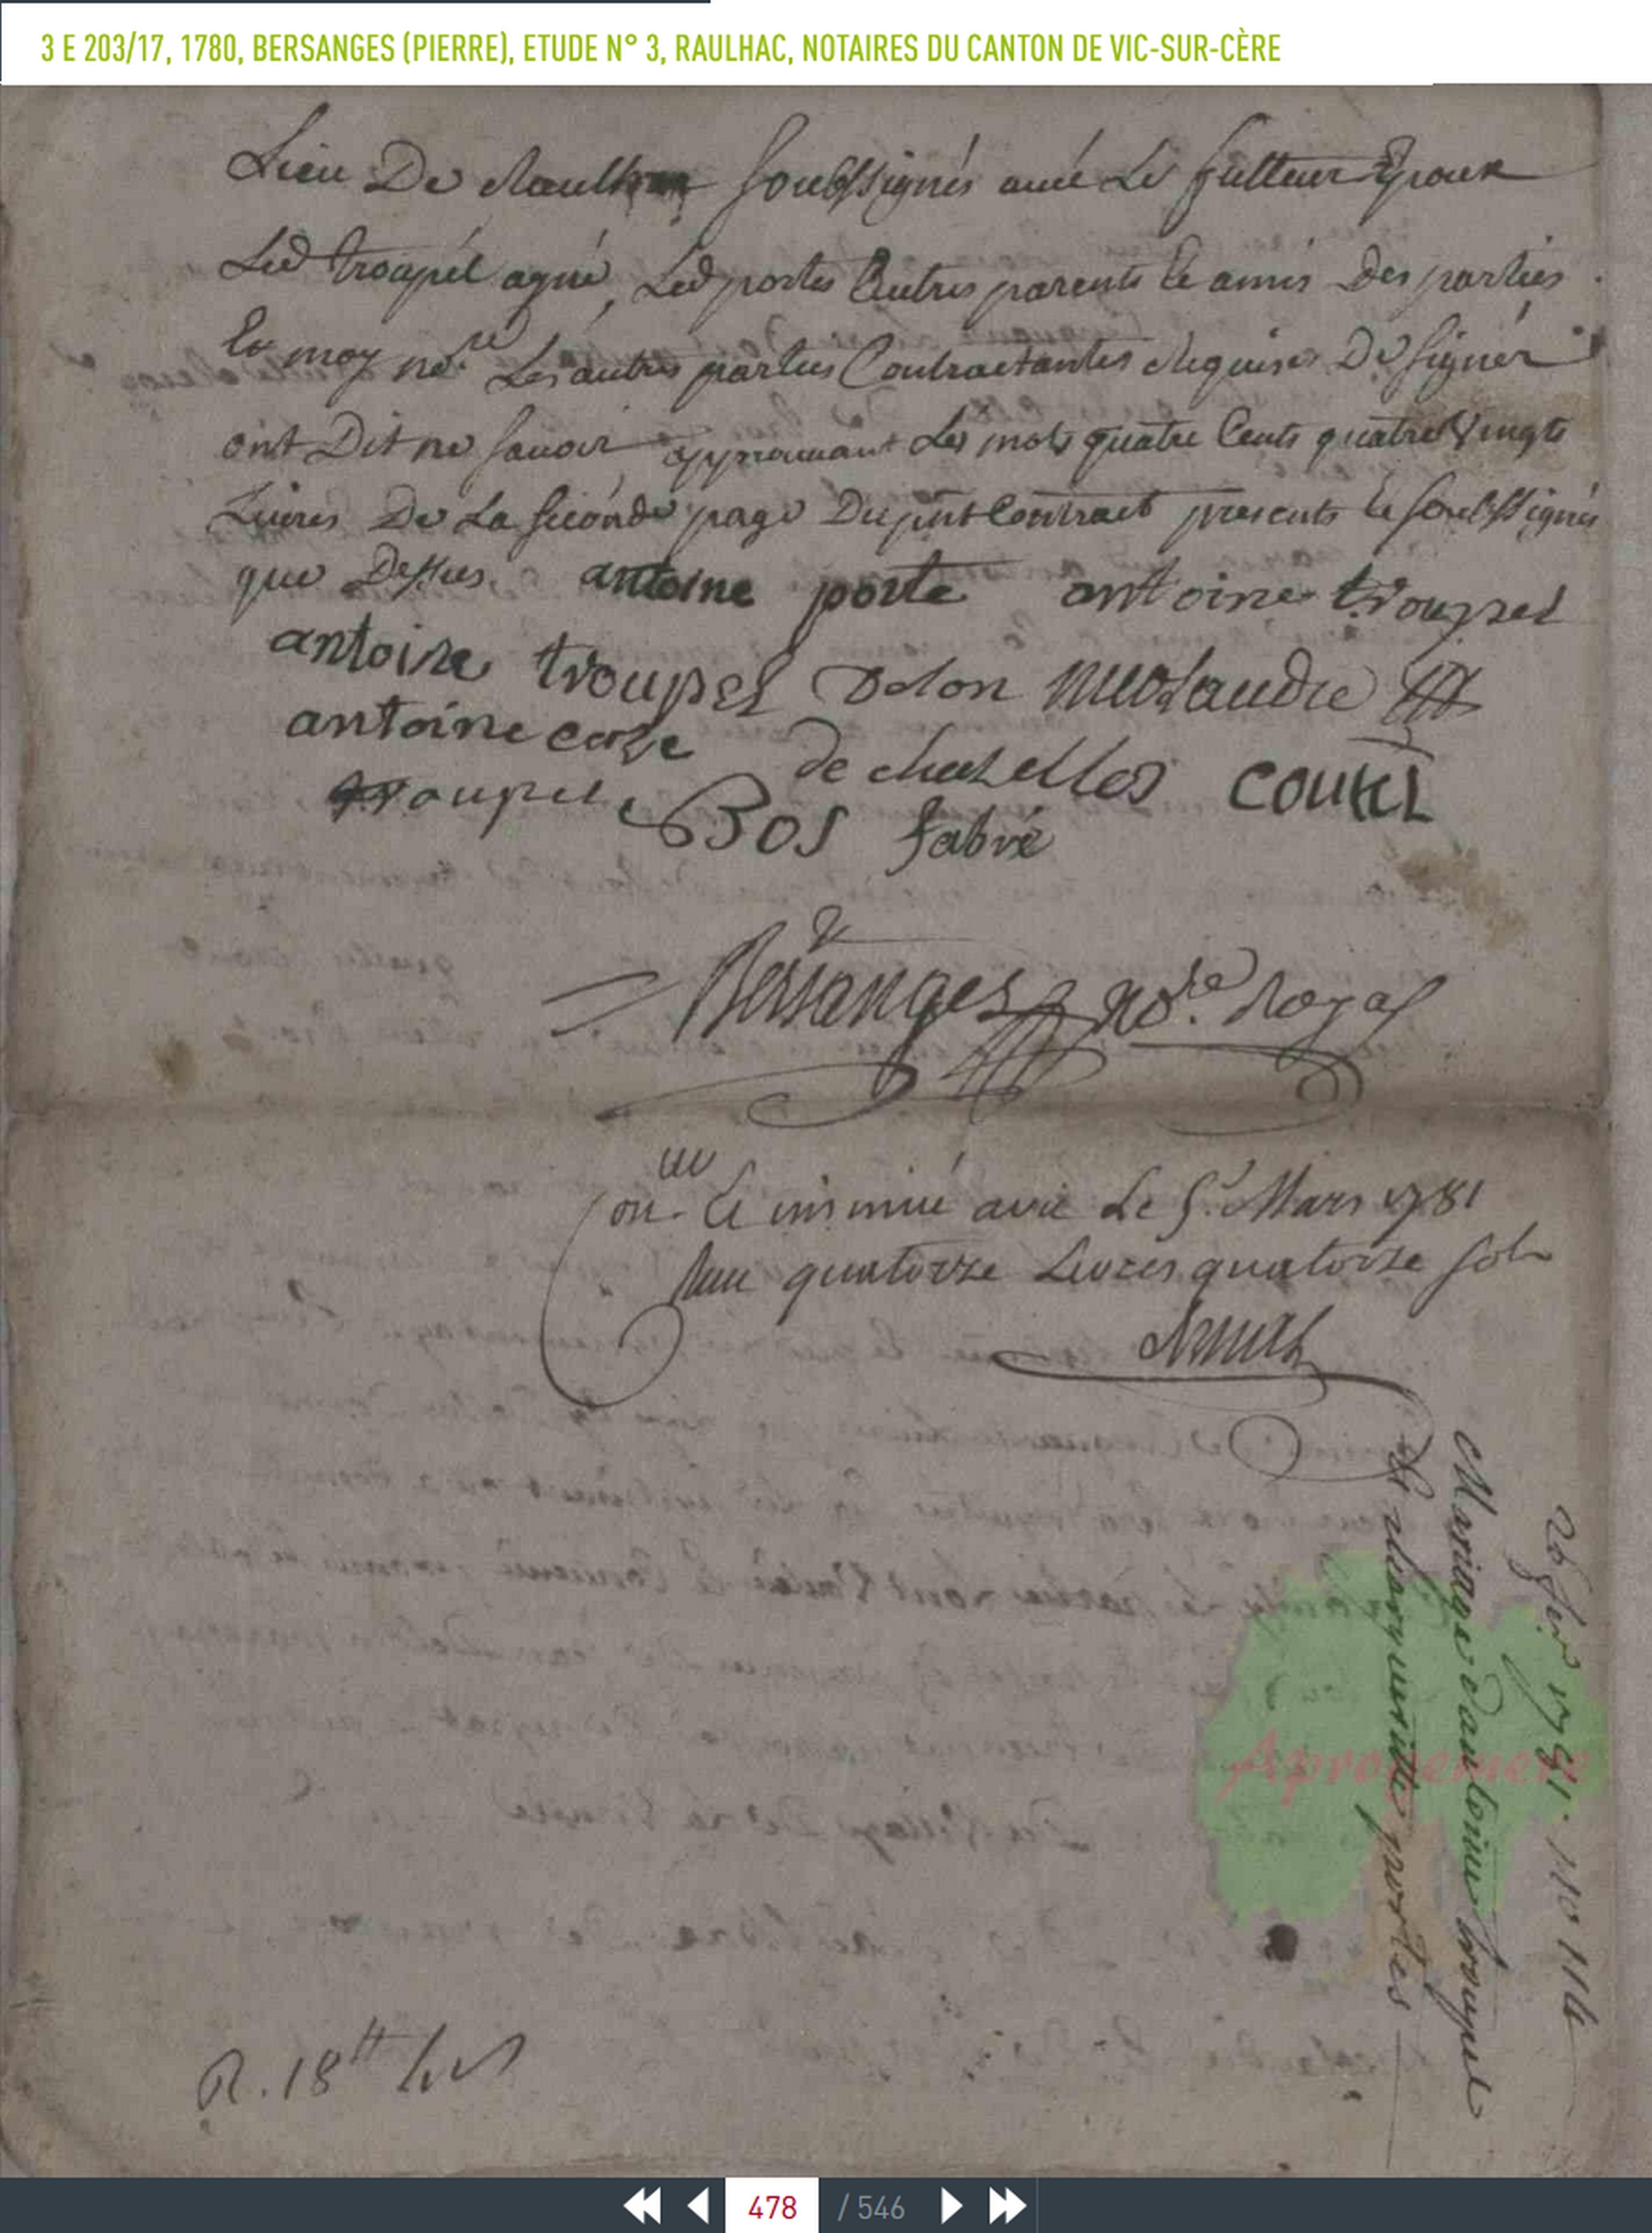 3 E 203/17, 1780, BERSANGES (PIERRE), ETUDE N° 3, RAULHAC, NOTAIRES DU CANTON DE VIC-SUR-CÈRE
Lieu De Raulhac soubssignés avec Le futteur Epoux
Led troupél ayné, Led portes & autres parents & amis Des parties
Et moy nore Les autres parties Contractantes Requises De signér
ont Dit ne savoir approuvant Les mots quatre Cents quatre Vingts
Livres De La séconde page Du pnt Contract presents & soubssignés
que Dessus. antoine porte antoine troupel
antoine troupel Delon
antoine de chazelles COUREL
troupel Bos fabré
Bersanges nore Royal
Con. & insinué a vic Le 5. Mars 1781
Reçu quatorze Livres quatorze sols
26 fer 1781. no 114
Mariage d'antoine troupel
et marguerite portes
R. 18tt
Apronemere
478 / 546